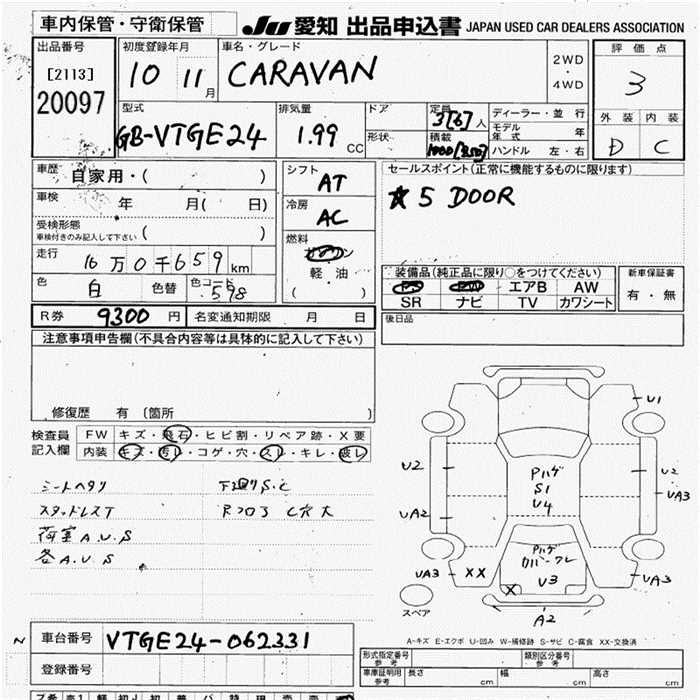 車内保管・守衛保管
JU 愛知 出品申込書 JAPAN USED CAR DEALERS ASSOCIATION
出品番号
[2113]
20097
初度登録年月
10 11月
車名・グレード
CARAVAN
2WD
・
4WD
評価点
3
型式
GB-VTGE24
排気量
1.99 CC
ドア
形状
定員
3[6]人
積載
1000[350]
ディーラー・並行
モデル年式 年
ハンドル 左・右
外装 内装
D C
車歴
自家用・( )
車検 年 月( 日)
受検形態
車検付きのみ記入して下さい ( )
走行
16万0千659km
色 白 色替 色コード 598
シフト
AT
冷房
AC
燃料
ガソリン
軽油
( )
セールスポイント(正常に機能するものに限ります)
☆5 DOOR
装備品(純正品に限り○をつけてください)
PS PW エアB AW
SR ナビ TV カワシート
新車保証書
有・無
R券 9300 円 名変通知期限 月 日
後日品
注意事項申告欄(不具合内容等は具体的に記入して下さい)
修復歴 有 〔箇所 〕
検査員
記入欄
FW キズ・飛石・ヒビ割・リペア跡・X要
内装 キズ・汚レ・コゲ・穴・スレ・キレ・破レ
シートヘタリ
スタッドレスT
荷室A.U.S
各A.U.S
下廻りS.C
Rフロア C穴大
U1
U2
U2
UA3
UA2
Pハゲ
S1
U4
Pハゲ
カバーワレ
U3
UA3
XX
X
UA3
A2
スペア
A-キズ E-エクボ U-凹み W-補修跡 S-サビ C-腐食 XX-交換済
N
車台番号 VTGE24-062331
登録番号
形式指定番号
参考
類別区分番号
参考
車庫証明用
参考
長さ cm
幅 cm
高さ cm